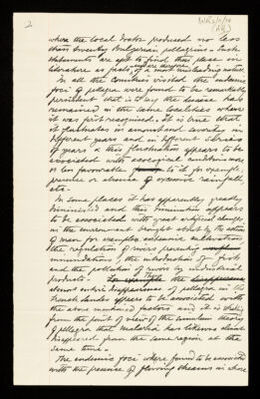 2
where the local doctor produced no less
than twenty Bulgarian pellagrins. Such
statements are apt to find their place in
literature as facts of a most misleading nature.
In all the countries visited the endemic
foci of pellagra were found to be remarkably
persistent that is to say the disease has
remained in the same localities where
it was first recognised. It is true that
it fluctuates in amount and severity in
different years and in different series
of years & this fluctuation appears to be
associated with ecological conditions more
or less favorable to it for example,
presence or absence of excessive rainfall,
etc.
In some places it has apparently greatly
diminished and this diminution appears
to be associated with great artificial changes
in the environment brought about by the action
of man for example, extensive
the regulation of rivers formerly
inundations, the introduction of fish,
and the pollution of rivers by industrial
products. The
almost entire disappearance of pellagra in the
French Landes appears to be associated with
the above mentioned factors and it is striking
from the point of view of the
of pellagra that malaria has likewise almost
disappeared from the same region at the
same time.
The endemic foci where found to be associated
with the presence of flowing streams in whose